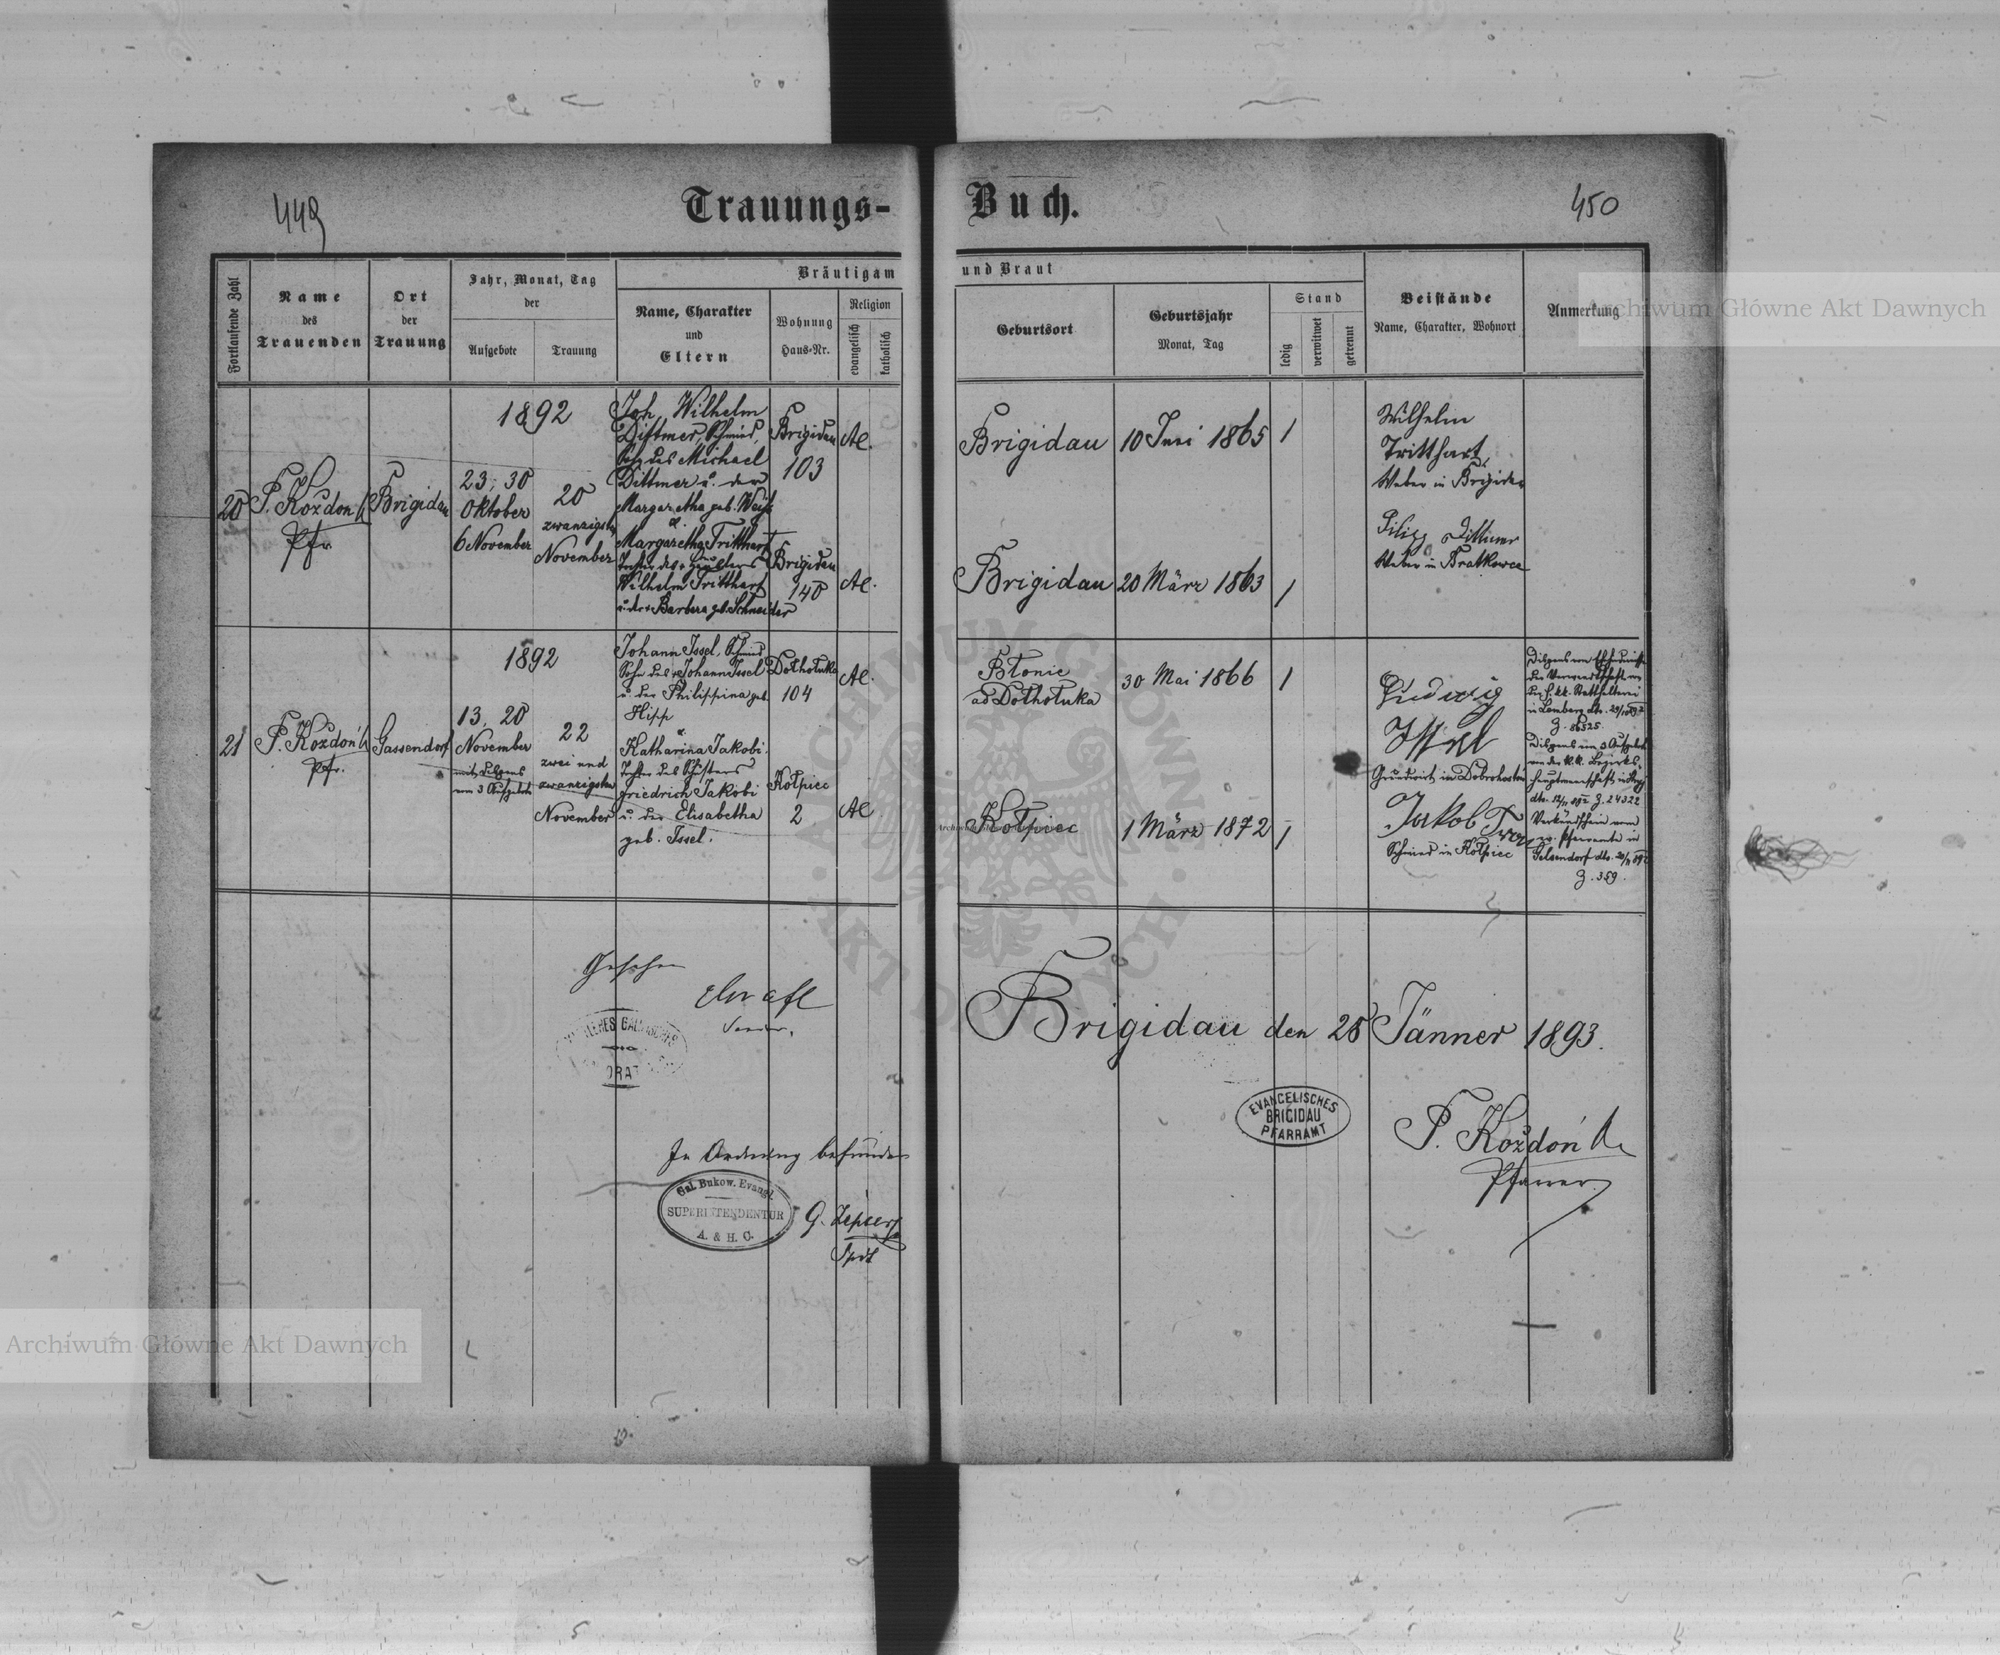 449
Trauungs-
Buch.
450
Fortlaufende Zahl
Name
des
Trauenden
Ort
der
Trauung
Jahr, Monat, Tag
der
Aufgebote
Trauung
Bräutigam
Name, Charakter
und
Eltern
Wohnung
Haus-Nr.
Religion
evangelisch
katholisch
und Braut
Geburtsort
Geburtsjahr
Monat, Tag
Stand
ledig
verwitwet
getrennt
Beistände
Name, Charakter, Wohnort
Anmerkung
20
P. Koždoń
Pfr.
Brigidau
1892
23, 30
Oktober
6 November
20
zwanzigsten
November
Joh. Wilhelm
Dittmer, Schmied,
Sohn des Michael
Dittmer u. der
Margaretha geb. Weiß
&
Margaretha Tritthart
Tochter des
Wilhelm Tritthart
u. der Barbara geb. Schneider
Brigidau
103
Brigidau
140
AC.
AC.
Brigidau
10 Juni 1865
1
Brigidau
20 März 1863
1
Wilhelm
Tritthart
Weber in Brigidau
Filipp Dittmer
Weber in Bratkowce
21
P. Koždoń
Pfr.
Gassendorf
1892
13, 20
November
mit Dispens
vom 3 Aufgebote
22
zwei und
zwanzigsten
November
Johann Issel, Schmied
Sohn des Johann Issel
u. der Philippina geb.
Hipp
&
Katharina Jakobi,
Tochter des Schusters
Friedrich Jakobi
u. der Elisabetha
geb. Issel.
Dothołuka
104
Kołpiec
2
AC.
AC
Błonie
ad Dothołuka
30 Mai 1866
1
Kołpiec
1 März 1872
1
Ludwig
Issel
Grundwirt in
Jakob
Schmied in Kołpiec
Dispens vom Ehehindernisse
der Verwandtschaft von
der h. kk. Statthalterei
in Lemberg dto.
Z. 86525
Dispens vom 3 Aufgebote
von der k.k. Bezirks-
hauptmannschaft in
dto. 12/11 892 Z. 24322
Verkündschein vom
ev. Pfarramte in
Gelsendorf dto. 20/11 892
Z. 359.
Gesehen
Senior.
Brigidau den 25 Jänner 1893.
EVANGELISCHES
BRIGIDAU
PFARRAMT
P. Koždoń
Pfarrer
In Ordnung befunden
Gal. Bukow. Evangl.
SUPERINTENDENTUR
A. & H. C.
Archiwum Główne Akt Dawnych
Archiwum Główne Akt Dawnych
ARCHIWUM GŁÓWNE
AKT DAWNYCH